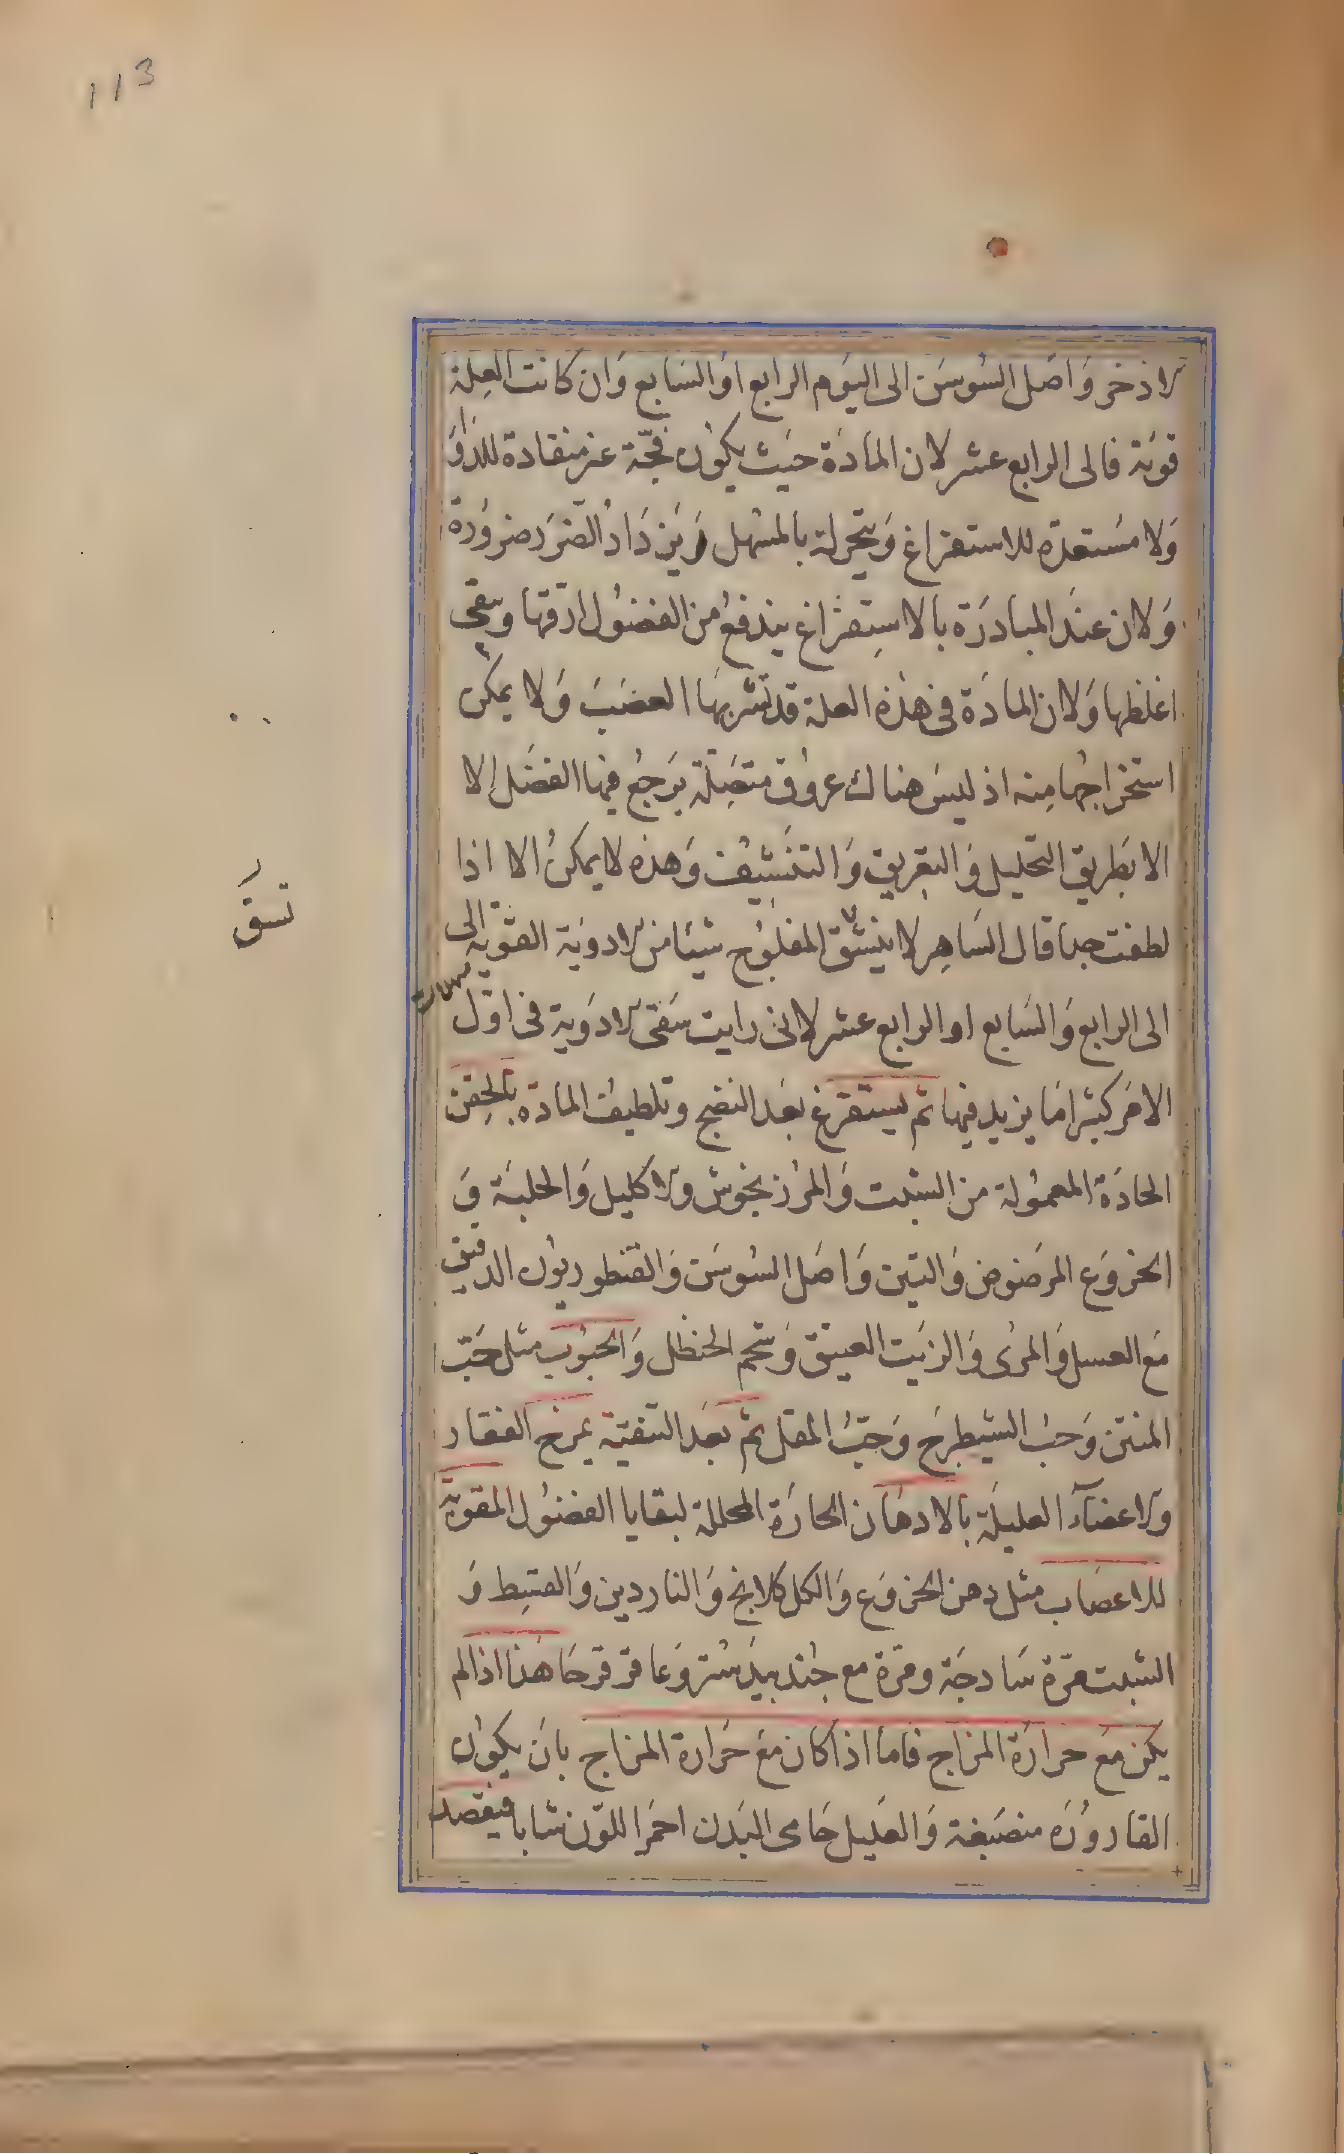 113
الاذخر وَاصَل السُوسَن الى اليَوم الرابع اوَالسَابع وَان كانت العِلة
قوَية فالى الرابع عشر لان المادَة حيَث يكوُن فجّة غير منقادة للدَوَا
وَلا مسُتعدَة للاستفراغ وَيتحركة بالمسُهل وَيَزدَادُ الضَرَر ضروُرة
وَلان عندَ المبادَرَة بالاستِفرَاغ يندفعُ من الفضوُل ارَقها ويبقى
اغلظها وَلان المادَة فى هذه العلة قد تشربهَا العصَبَ وَلا يمكن
استخراجُها مِنه اذ ليسَ هناك عروُق متصِلة يَرجعُ فيها الفضَل إلا
الا بطَريق التحليل وَالتعِريق وَالتنَشِيف وَهذه لا يمكنُ الا اذا
لطفت جدا قال السَاهِر لا ينشق المفلوُج شيئا من الادوَية القوّية الى
الى الرابع وَالسَابع او الرابع عشر لانى رايت سَقى الادوَية فى اوّل
الامَر كثيرامَا يزيد فيها ثم يستفرغ بعَد النضج وتلطيف المادة بالحِقن
الحادَة المعموُلة من الشبت وَالمرُزنجوش والاكليل وَالحلبَة وَ
الخروَع المرَضوض وَالتين وَاصَل السُوسَن وَالقنطوريوُن الدقيق
مَع العسل وَالمرُى وَالزيَت العيتق وَشحم الحنظل وَالحبوُب مثل حَبّ
المنتن وَحبُ الشيطرَج وَحبُّ المقل ثم بعَد التنقية يمرخ الفقار
والاعضآء العليلَة بالادهَان الحارَة المحللة لبقايا الفضوُل المقوية
للاعصَاب مثل دهن الخروَع وَالكلكلانج وَالناردين وَالقسِط وَ
الشبت مرَّة سَادجَة ومرَّة مع جنُد بيدَستر وَعاقر قرحَا هَذا اذا لم
يكن مَع حرارَة المزاج فاما اذا كان مَعَ حَرارة المزاج بانَ يكوُن
القاروُرَة منصَبغة وَالعليل حَامى البَدن احمَر اللّون شابا فيفصد